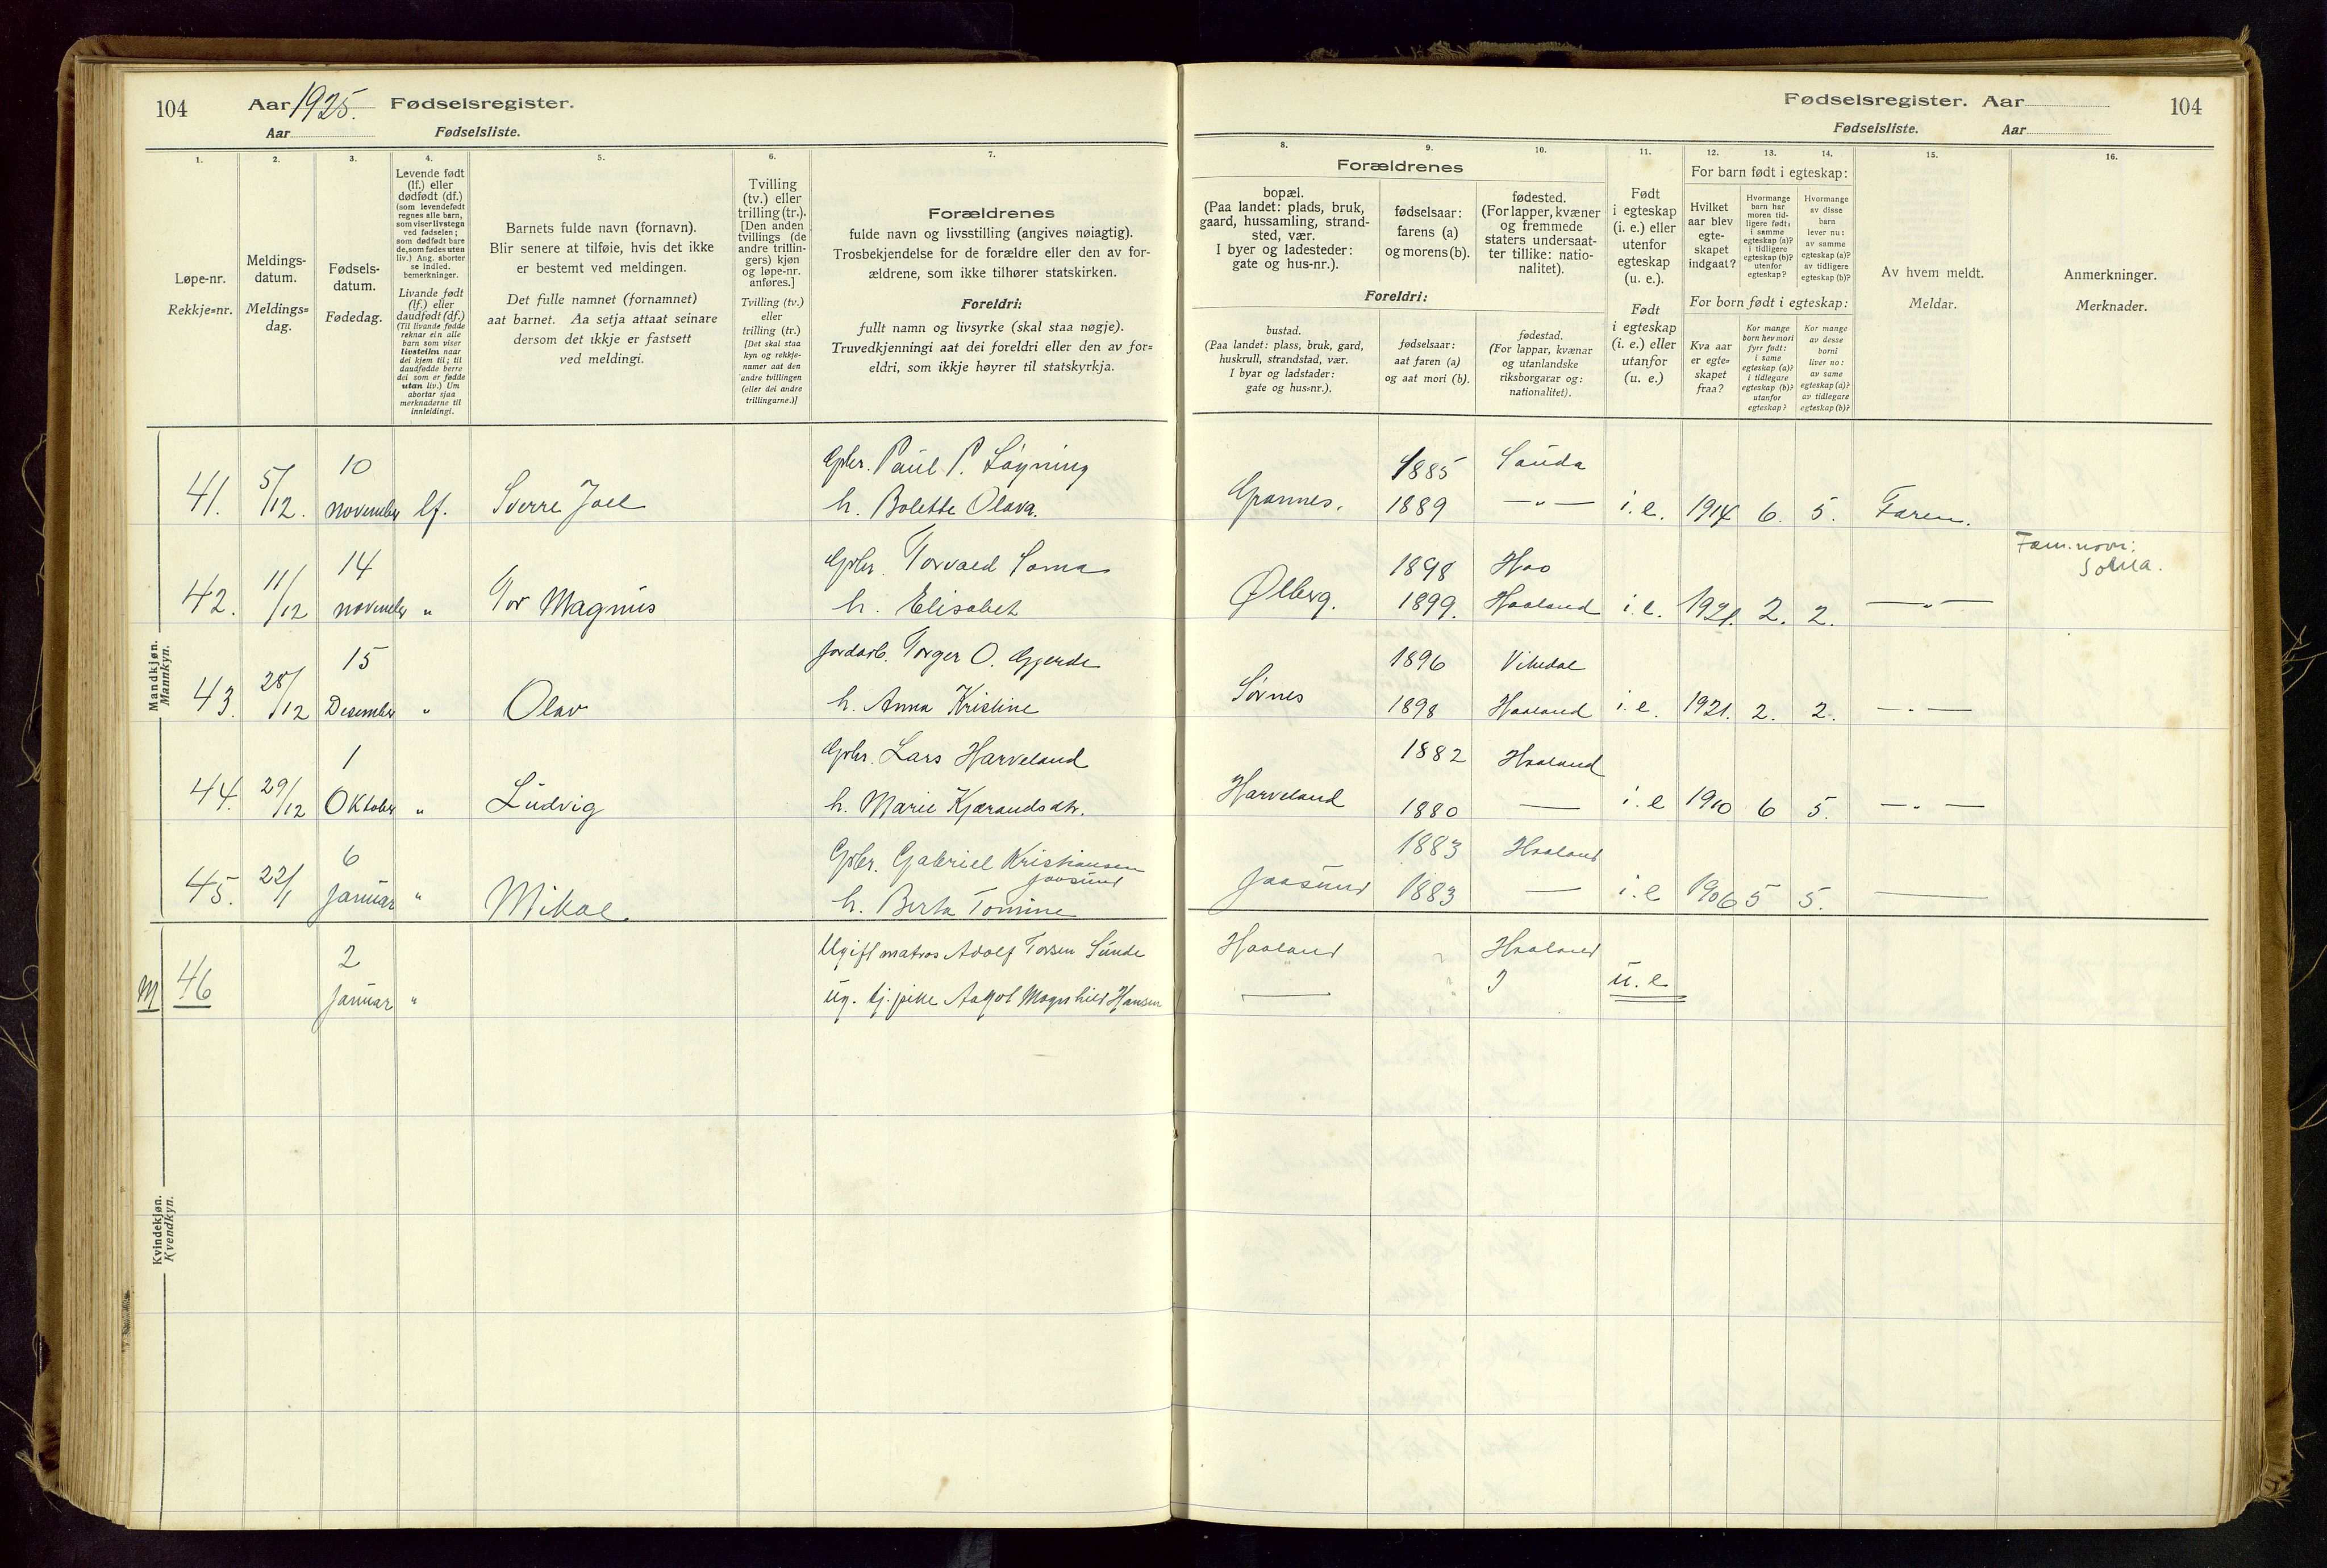 104 Aar 1925. Fødselsregister.
Aar Fødselsliste.
Fødselsregister. Aar 104
Fødselsliste. Aar
1. 2. 3. 4. 5. 6. 7.
8. 9. 10. 11. 12. 13. 14. 15. 16.
Løpe-nr.
Rekkje=nr.
Meldings-
datum.
Meldings=
dag.
Fødsels-
datum.
Fødedag.
Levende født
(lf.) eller
dødfødt (df.)
(som levendefødt
regnes alle barn,
som viser livstegn
ved fødselen;
som dødfødt bare
de, som fødes uten
liv.) Ang. aborter
se indled.
bemerkninger.
Livande født
(lf.) eller
daudfødt (df.)
(Til livande fødde
reknar ein alle
barn som viser
livsteikn naar
dei kjem til; til
daudfødde berre
dei som er fødde
utan liv.) Um
abortar sjaa
merknaderne til
innleidingi.
Barnets fulde navn (fornavn).
Blir senere at tilføie, hvis det ikke
er bestemt ved meldingen.
Det fulle namnet (fornamnet)
aat barnet. Aa setja attaat seinare
dersom det ikkje er fastsett
ved meldingi.
Tvilling
(tv.) eller
trilling (tr.).
[Den anden
tvillings (de
andre trillin-
gers) kjøn
og løpe-nr.
anføres.]
Tvilling (tv.)
eller
trilling (tr.)
[Det skal staa
kyn og rekkje-
numer aat den
andre tvillingen
(eller dei andre
trillingarne.)]
Forældrenes
fulde navn og livsstilling (angives nøiagtig).
Trosbekjendelse for de forældre eller den av for-
ældrene, som ikke tilhører statskirken.
Foreldri:
fullt namn og livsyrke (skal staa nøgje).
Truvedkjenningi aat dei foreldri eller den av for=
eldri, som ikkje høyrer til statskyrkja.
Forældrenes
bopæl.
(Paa landet: plads, bruk,
gaard, hussamling, strand-
sted, vær.
I byer og ladesteder:
gate og hus-nr.).
fødselsaar:
farens (a)
og morens (b).
fødested.
(For lapper, kvæner
og fremmede
staters undersaat-
ter tillike: natio-
nalitet).
Foreldri:
bustad.
(Paa landet: plass, bruk, gard,
huskrull, strandstad, vær.
I byar og ladstader:
gate og hus=nr.).
fødselsaar:
aat faren (a)
og aat mori (b).
fødestad.
(For lappar, kvænar
og utanlandske
riksborgarar og:
nationalitet).
Født
i egteskap
(i. e.) eller
utenfor
egteskap
(u. e.).
Født
i egteskap
(i. e.) eller
utanfor
(u. e.)
For barn født i egteskap:
Hvilket
aar blev
egte-
skapet
indgaat?
Hvormange
barn har
moren tid-
ligere født:
i samme
egteskap (a)?
i tidligere
egteskap (b)?
utenfor
egteskap?
Hvormange
av disse
barn
lever nu:
av samme
egteskap (a)?
av tidligere
egteskap (b)?
For born født i egteskap:
Kva aar
er egte=
skapet
fraa?
Kor mange
born hev mori
fyrr født:
i same
egteskap (a)?
i tidlegare
egteskap (b)?
utanfor
egteskap?
Kor mange
av desse
borni
liver no:
av same
egteskap (a)?
av tidlegare
egteskap (b)?
Av hvem meldt.
Meldar.
Anmerkninger.
Merknader.
Mandkjøn.
Mannkyn.
10 Gbr. Paul P. Løyning 1885 Sauda
41. 5/12. november lf. Sverre Joel h. Bolette Olava. Grannes. 1889 —"— i.e. 1914 6. 5. Faren.
14 Gbr. Torvald Soma 1898 Haa Fam.navn:
Soma.
42. 11/12 november " Tor Magnus h. Elisabet Ølberg. 1899. Haaland i.e. 1921. 2. 2. —"—
15 Jordarb. Torger O. Gjerde 1896 Vikedal
43. 28/12 Desember " Olav h. Anna Kristine Sørnes 1898 Haaland i.e. 1921. 2. 2. —"—
1 Gbr. Lars Harveland 1882 Haaland
44. 29/12 Oktober " Ludvig h. Marie Kjærandsdtr. Harveland 1880 — i.e 1910 6 5. —"—
6 Gbr. Gabriel Kristiansen 1883 Haaland
Jaasund
45. 22/1 Januar " Mikal. h. Berta Tomine Jaasund 1883 — i.e 1906 5 5. —
2 Ugift matros Adolf Torsen Sunde Haaland " Haaland
M 46 Januar " ug. tj. pike Aagot Magnhild Hansen — " ? u.e
Kvindekjøn.
Kvendkyn.